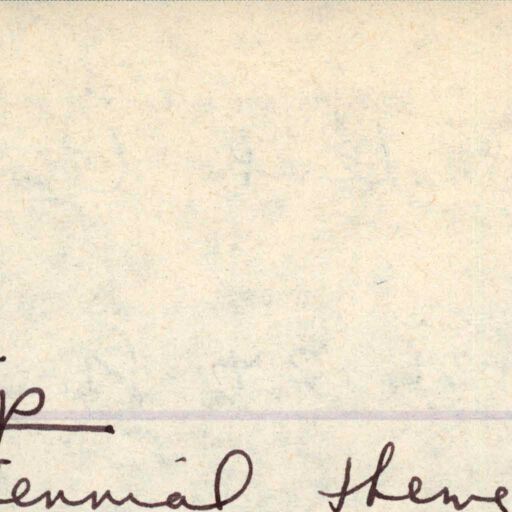 ip
tennial theme